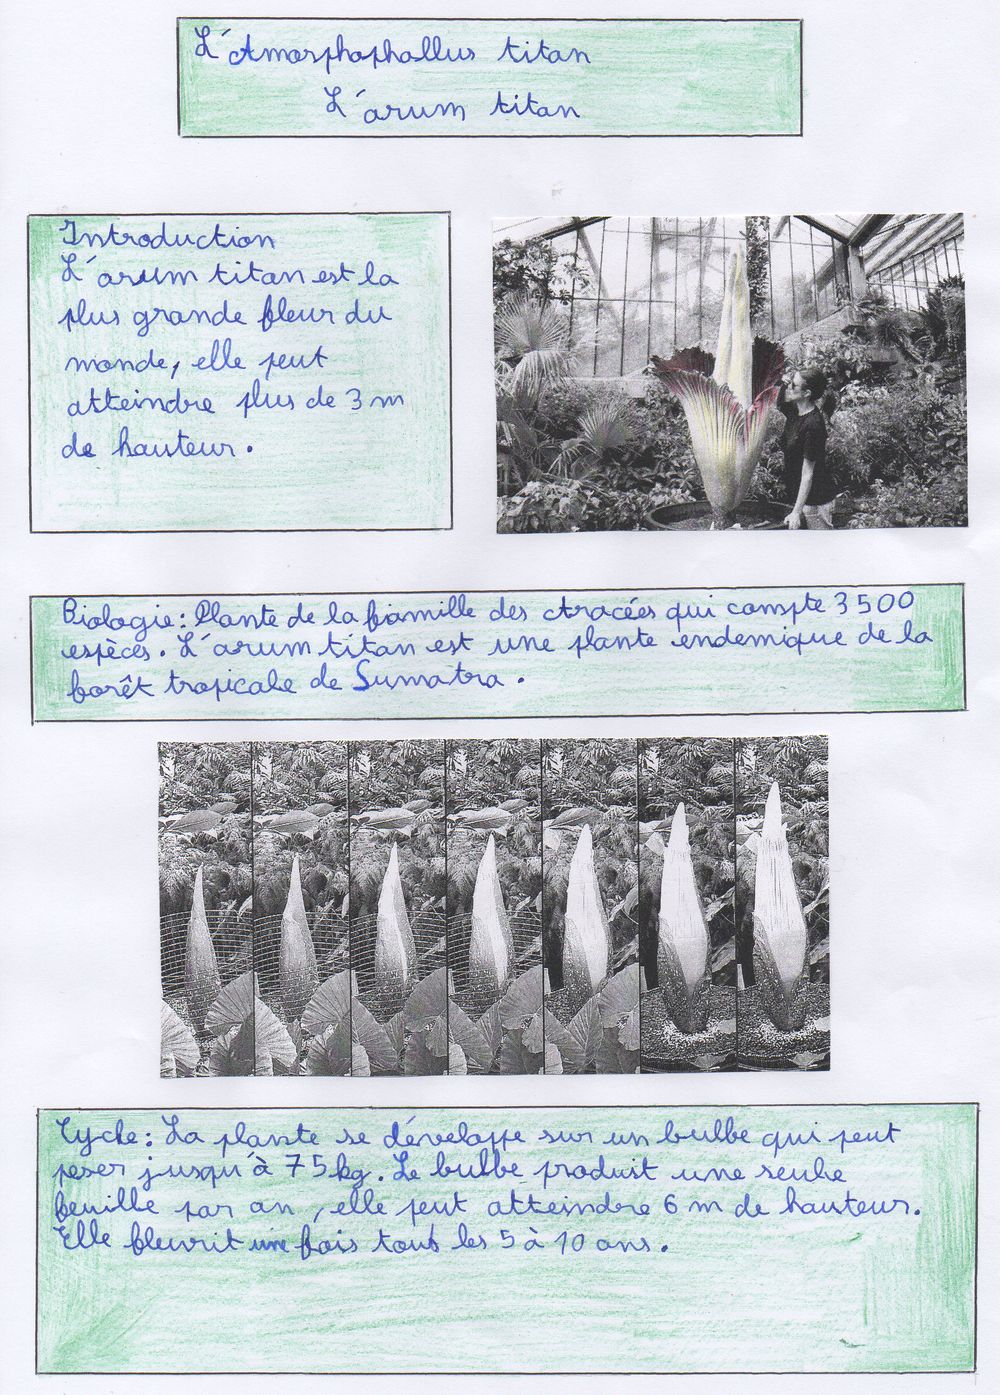 L'Amorphophallus titan
L'arum titan
Introduction
L'arum titan est la
plus grande fleur du
monde, elle peut
atteindre plus de 3 m
de hauteur.
Biologie : Plante de la famille des Aracées qui compte 3500
espèces. L'arum titan est une plante endemique de la
forêt tropicale de Sumatra.
Cycle : La plante se développe sur un bulbe qui peut
peser jusqu'à 75 kg. Le bulbe produit une seule
feuille par an, elle peut atteindre 6 m de hauteur.
Elle fleurit une fois tous les 5 à 10 ans.